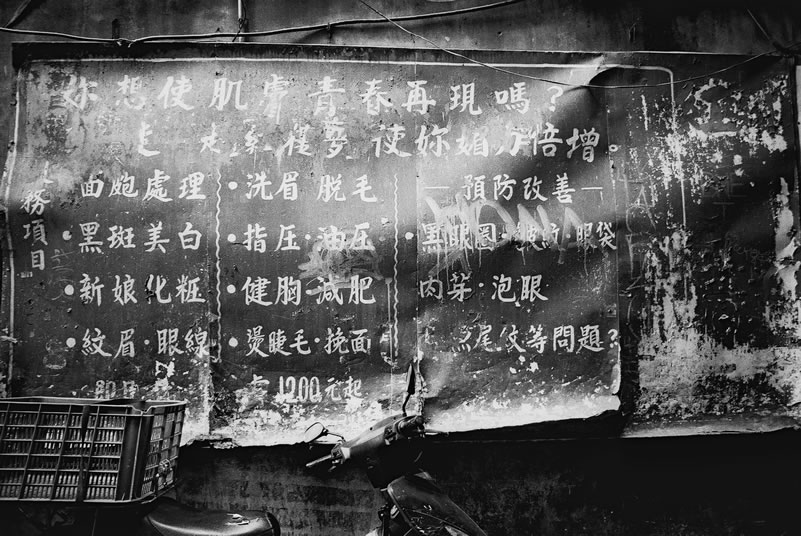 你想使肌膚青春再現嗎?
使妳媚力倍增。
務項目
面皰處理
•黑斑美白
•新娘化粧
•紋眉·眼線
•洗眉 脫毛
•指圧·油圧
•健胸·減肥
•燙睫毛·挽面
1200元起
—預防改善—
•黑眼圈·皺紋·眼袋
肉芽·泡眼
尾纹等問題?